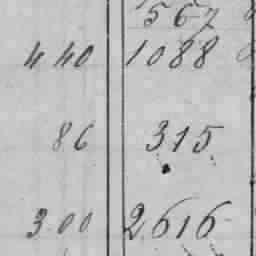 567
4 40 1088
86 315
3 00 2616